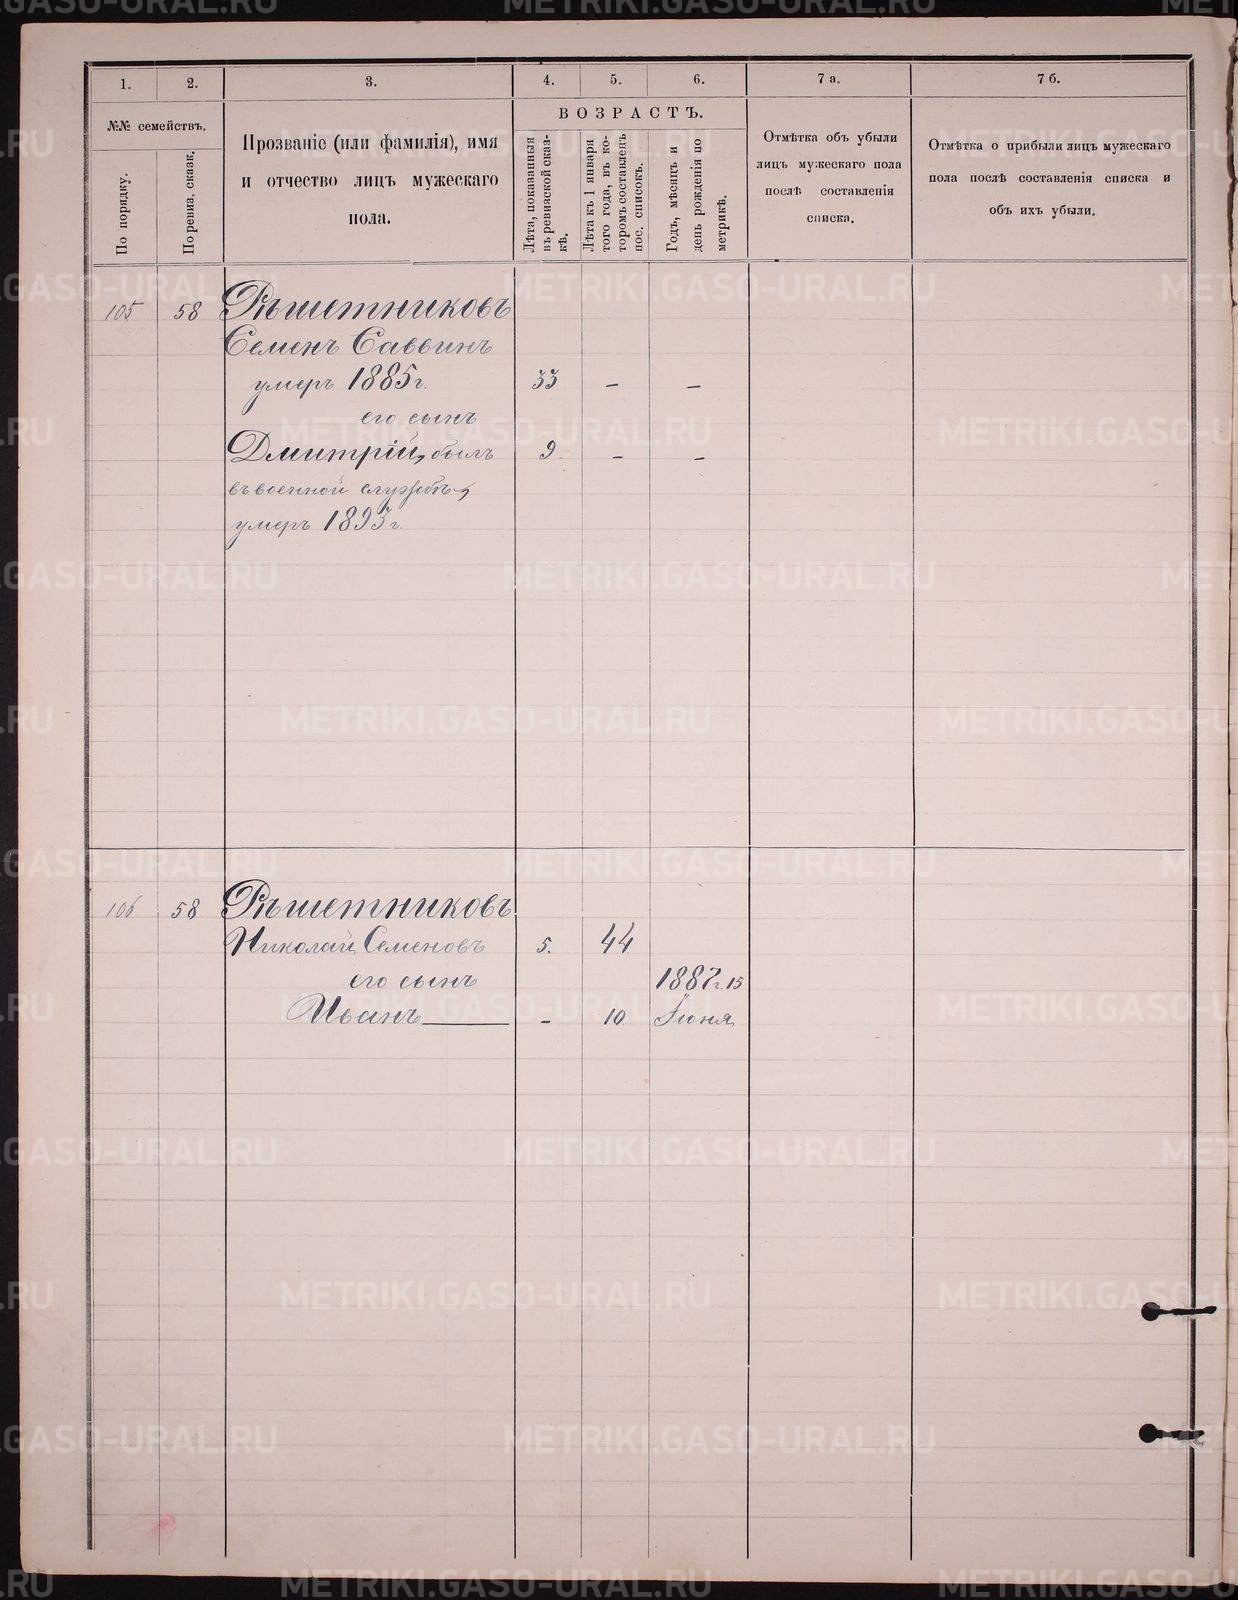 1.
2.
3.
4.
5.
6.
7 а.
7 б.
№№ семействъ.
По порядку.
По ревиз. сказк.
Прозваніе (или фамилія), имя
и отчество лицъ мужескаго
пола.
ВОЗРАСТЪ.
Лѣта, показанныя
въ ревизской сказ-
кѣ.
Лѣта къ 1 января
того года, въ ко-
торомъ составленъ
пос. списокъ.
Годъ, мѣсяцъ и
день рожденія по
метрикѣ.
Отмѣтка объ убыли
лицъ мужескаго пола
послѣ составленія
списка.
Отмѣтка о прибыли лицъ мужескаго
пола послѣ составленія списка и
объ ихъ убыли.
105 58 Рѣшетниковъ
Семенъ Саввинъ
умеръ 1885 г. 33 – –
его сынъ
Дмитрій, былъ 9. – –
въ военной службѣ,
умеръ 1893 г.
106 58 Рѣшетниковъ
Николай Семеновъ 5. 44
его сынъ 1887 г. 15
Иванъ – 10 Іюня
METRIKI.GASO-URAL.RU